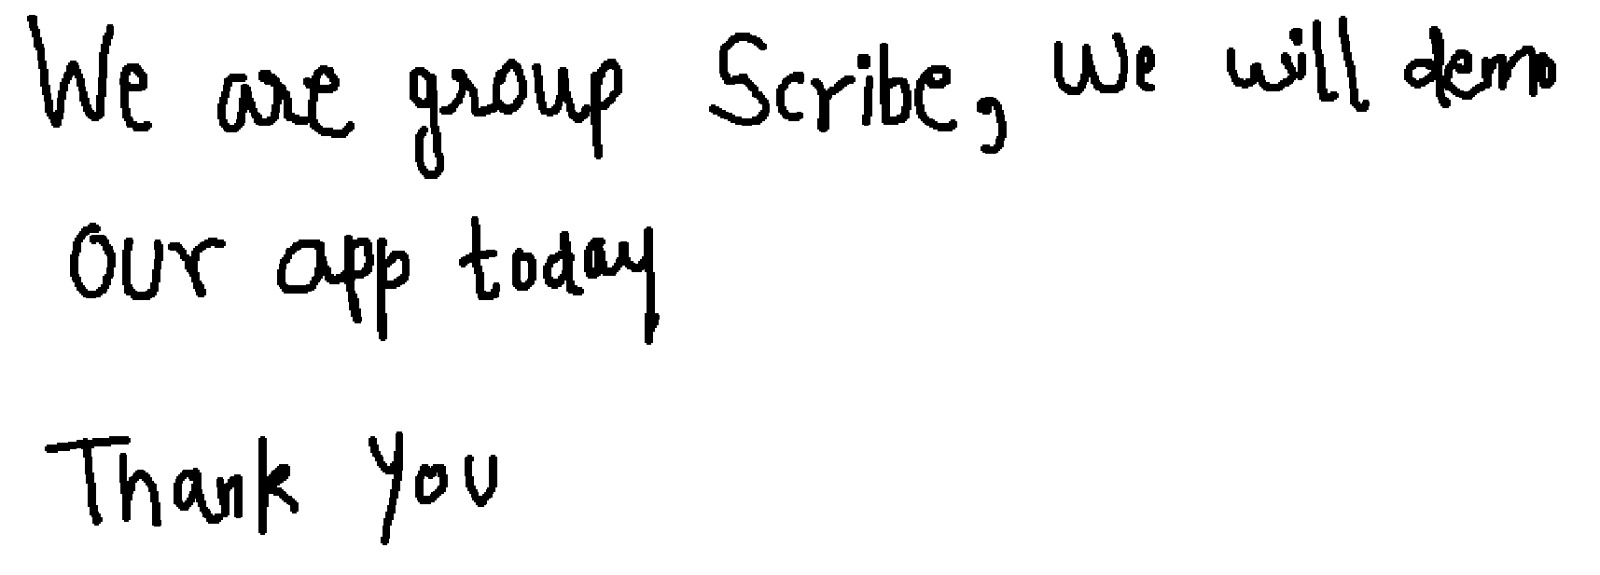 We are group Scribe, We will demo
our app today
Thank You